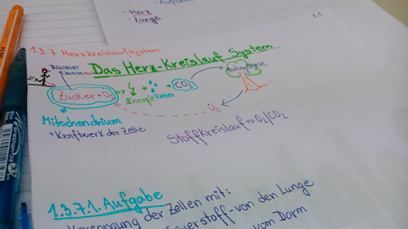 - Herz
- Lunge
1.3.7 Herzkreislaufsystem
Das Herz-Kreislauf System
Zucker + O₂ → Energie + Wasser + CO₂
O₂
Mitochondrium
* Kraftwerk der Zelle
Stoffkreislauf ⇒ O₂/CO₂
1.3.7.1. Aufgabe
Versorgung der Zellen mit:
Sauerstoff - von den Lunge
vom Darm